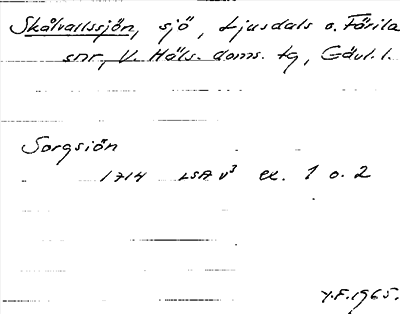 Skålvallssjön, sjö, Ljusdals o. Färila
snr, V. Häls. doms. tg, Gävl. l.
Sorgsiön
1714 LSA V³ ex. 1 o. 2
Y.F. 1965.